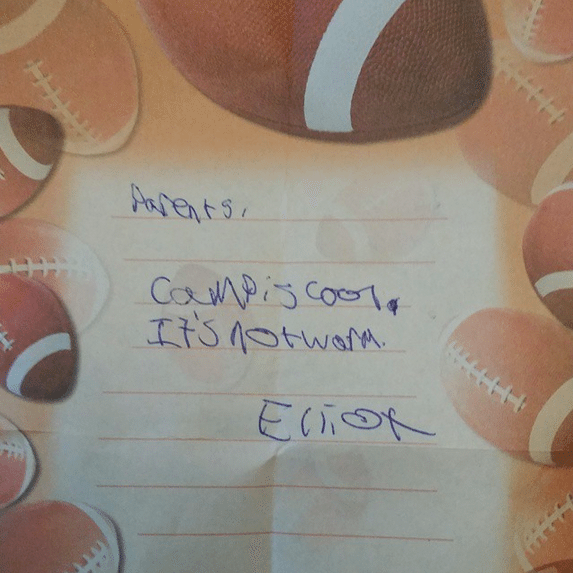 Parents,
Camp is cool.
It's not warm.
Elliot